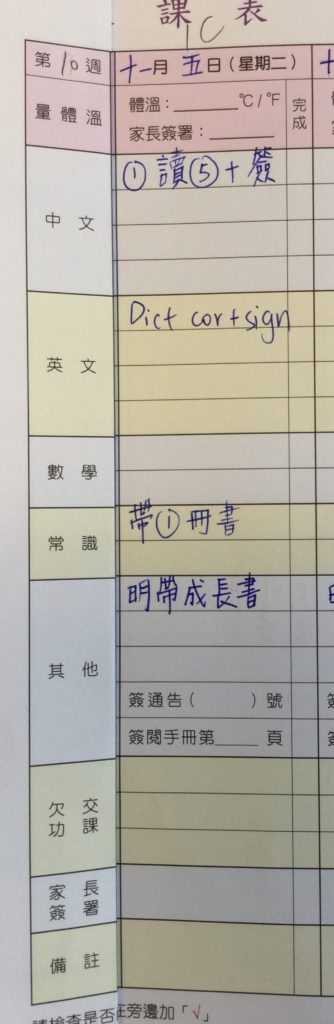 課表
1C
第10週 十一月五日(星期二)
量體溫 體溫:______℃/℉ 完成
家長簽署:______
中文 ①讀⑤+簽
英文 Dict cor+sign
數學
常識 帶①冊書
其他 明帶成長書
簽通告( )號
簽閱手冊第____頁
欠交功課
家長簽署
備註
請檢查是否在旁邊加「√」